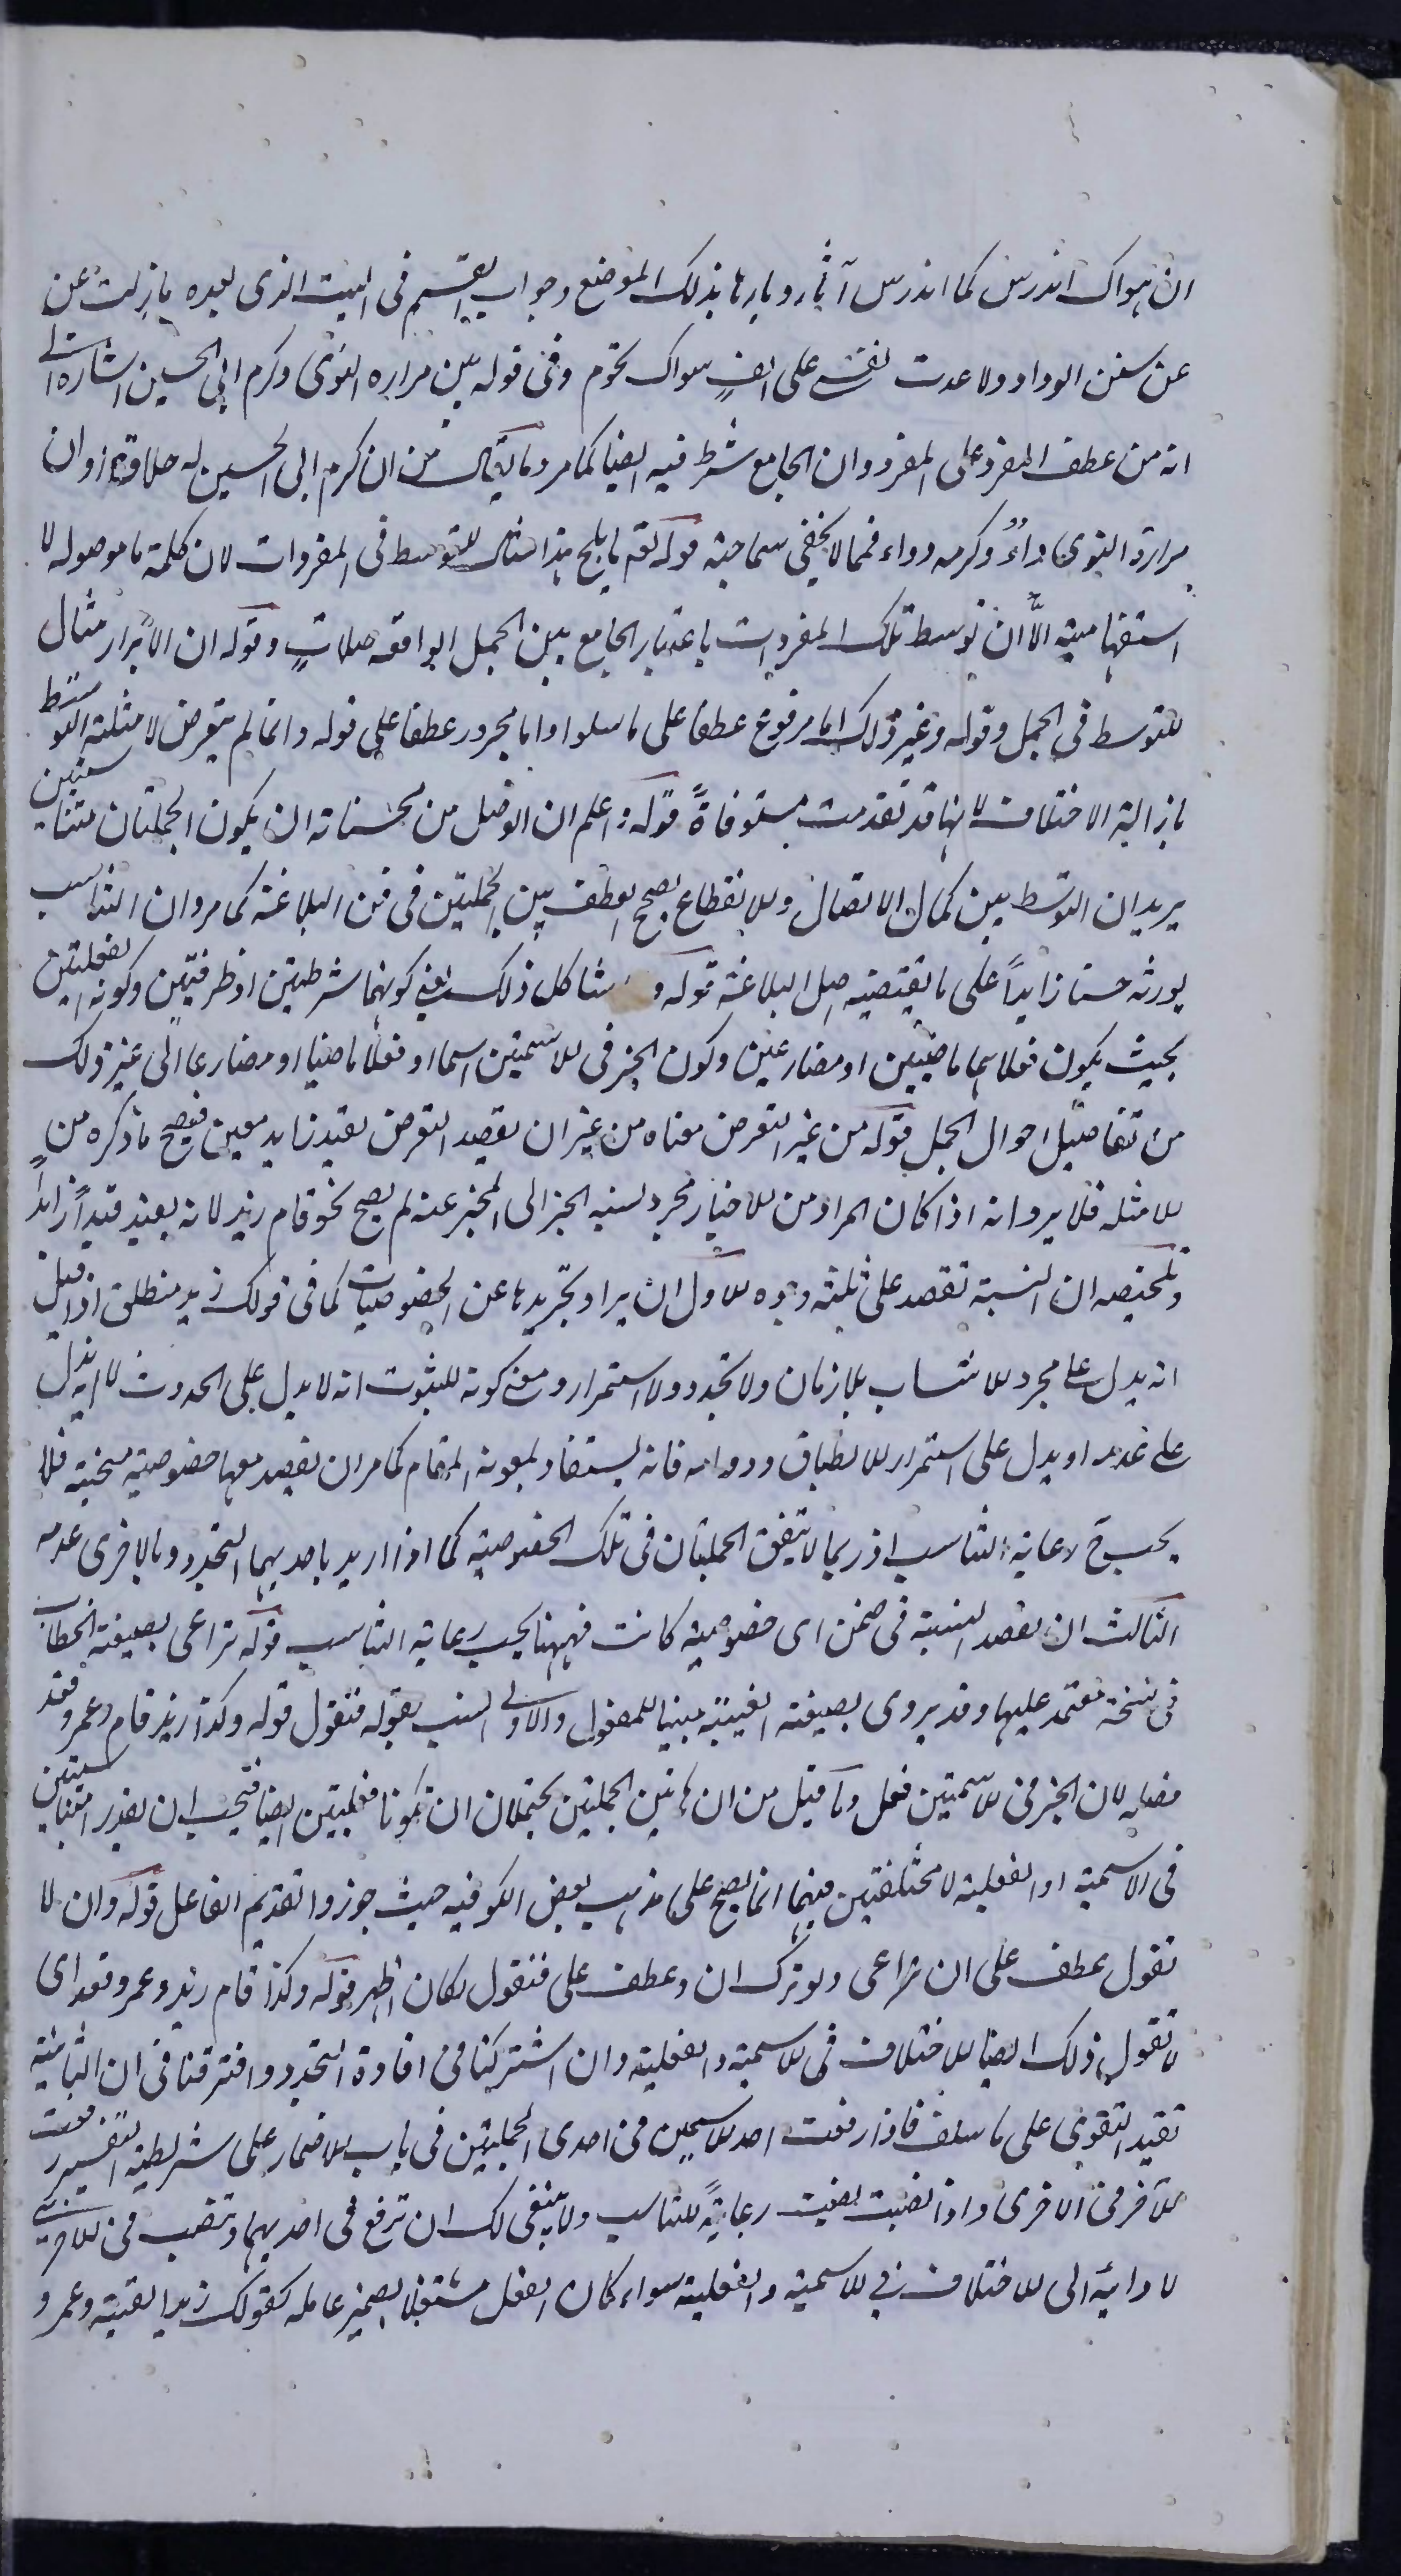 ان هواك اندرس كما اندرس آثار ديارها بذلك الموضع وجواب القسم فى البيت الذى بعده مازلت عن
عن سنن الوداد ولا عدت نفسى على الف سواك تحوم وفى قوله بين مرارة النوى وكرم ابى الحسين اشارة الى
انه من عطف المفرد على المفرد وان الجامع شرط فيه ايضا كما مر وما يقال من ان كرم ابى الحسين له حلاوة وان
مرارة النوى داءٌ وكرمه دواء فمما لا يخفى سماجته قوله يعلم ما يلج هذا مثال للتوسط فى المفردات لان كلمة ما موصوله لا
استفهامية الّا ان توسط تلك المفردات باعتبار الجامع بين الجمل الواقعة صلاتٍ وقوله ان الابرار مثال
للتوسط فى الجمل وقوله وغير ذلك اما مرفوع عطفا على ما سلوا واما مجرور عطفا على قوله وانما لم يتعرض لامثلة التوسط
بازالة الاختلاف لانها قد تقدمت مستوفاةً قوله واعلم ان الوصل من محسناته ان يكون الجملتان متناسبتين
يريد ان التوسط بين كمال الاتصال والانقطاع يصحح العطف بين الجملتين فى فن البلاغة كما مر وان التناسب
يورثه حسنا زايداً على ما يقتضيه اصل البلاغة قوله و شاكل ذلك يعنى كونهما شرطيتين او ظرفيتين وكون الفعليتين
بحيث يكون فعلاهما ماضيين او مضارعين وكون الخبر فى الاسميتين اسما او فعلا ماضيا او مضارعا الى غير ذلك
من تفاصيل احوال الجمل قوله من غير التعرض معناه من غير ان يقصد التعرض بقيد زايد معين فيصح ما ذكره من
الامثله فلا يرد انه اذا كان المراد من الاخبار مجرد نسبة الخبر الى المخبر عنه لم يصح نحو قام زيد لانه يفيد قيداً زايداً
وتلخيصه ان النسبة تقصد على ثلثة وجوه الاول ان يراد تجريدها عن الخصوصيات كما فى قولك زيد منطلق اذ قيل
انه يدل على مجرد الانتساب بلا زمان ولا تجدد ولا استمرار ومعنى كونه للثبوت انه لا يدل على الحدوث لا انه يدل
على عدمه او يدل على استمرار الانطلاق ودوامه فانه يستفاد بمعونة المقام كما مر ان يقصد معها خصوصية معينة فلا
يجب ح رعاية التناسب اذ ربما لا يتفق الجملتان فى تلك الخصوصية كما اذا اريد باحديهما التجدد وبالاخرى عدمه
الثالث ان يقصد النسبة فى ضمن اى خصوصية كانت فههنا يجب رعاية التناسب قوله تراعى بصيغة الخطاب
فى نسخة معتمد عليها وقد يروى بصيغة الغيبة مبنيا للمفعول والاولى انسب بقوله فتقول قوله وكذا زيد قام وعمرو قعد
فصله لان الخبر فى الاسميتين فعل وما قيل من ان هاتين الجملتين يحتملان ان تكونا فعليتين ايضا فيجب ان يقدر امتناسبتين
فى الاسمية او الفعلية لا مختلفتين فيهما انما يصح على مذهب بعض الكوفيه حيث جوزوا تقديم الفاعل قوله وان لا
تقول عطف على ان تراعى ولو ترك ان وعطف على فتقول لكان اظهر قوله وكذا قام زيد وعمرو قعد اى
لا تقول ذلك ايضا للاختلاف فى الاسمية والفعلية وان اشتركتا فى افادة التجدد وافترقتا فى ان الثانية
تفيد التقوى على ما سلف فاذا رفعت احد الاسمين فى احدى الجملتين فى باب الاضمار على شريطة التفسير رفعت
الآخر فى الاخرى واذا نصبت نصبت رعايةً للتناسب ولا ينبغى لك ان ترفع فى احديهما وتنصب فى الاخرى
لادائه الى الاختلاف فى الاسمية والفعلية سواء كان الفعل مشتغلا بضمير عامله كقولك زيدا لقيته وعمرو